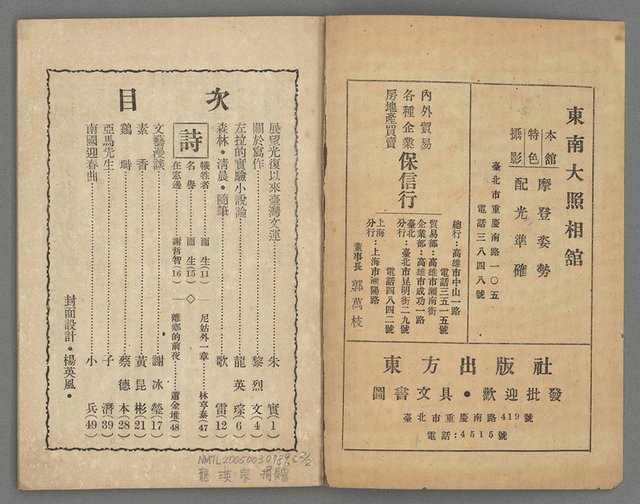 東南大照相舘
本舘
特色
攝影
摩登姿勢
配光準確
臺北市重慶南路一〇五
電話三八四八號
內外貿易
各種企業
房地產買賣
保信行
總行：高雄市中山一路
電話三五一五號
貿易部：高雄市瀨南街
企業部：高雄市成功一路
臺北分行：臺北市昆明街二九號
電話四八四二號
上海分行：上海市溧陽路
董事長 郭萬枝
東方出版社
圖書文具•歡迎批發
臺北市重慶南路419號
電話：4515號
目次
展望光復以來臺灣文運……朱實(1)
關於寫作……黎烈文(4)
左拉的實驗小說論……龍英琮(6)
森林•清晨•隨筆……歌雷(12)
詩
犧牲者 而生(11)
名譽 而生(15)
在窓邊 謝哲智(16)
尼姑外一章……林亨泰(47)
離鄉的前夜……蕭金堆(48)
文藝漫談……謝冰瑩(17)
素香……黃昆彬(21)
鷄時……蔡德本(28)
亞馬先生……子潛(39)
南國迎春曲……小兵(49)
封面設計•楊英風•
NMTL20050030789 c2/2
龍瑛宗 捐贈